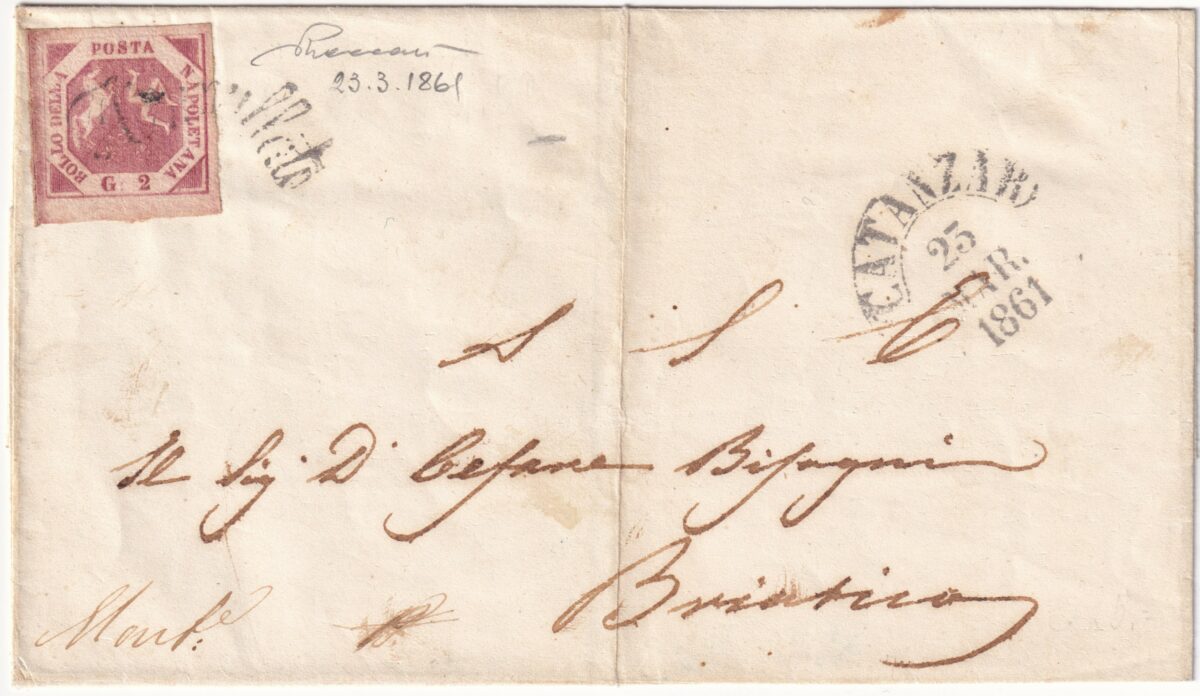 POSTA
NAPOLETANA
BOLLO DELLA
G. 2
Annullato
23.3.1861
CATANZARO
23
MAR.
1861
S S C
Il Sig D Cesare Bisogni
Briatico
Mont.e